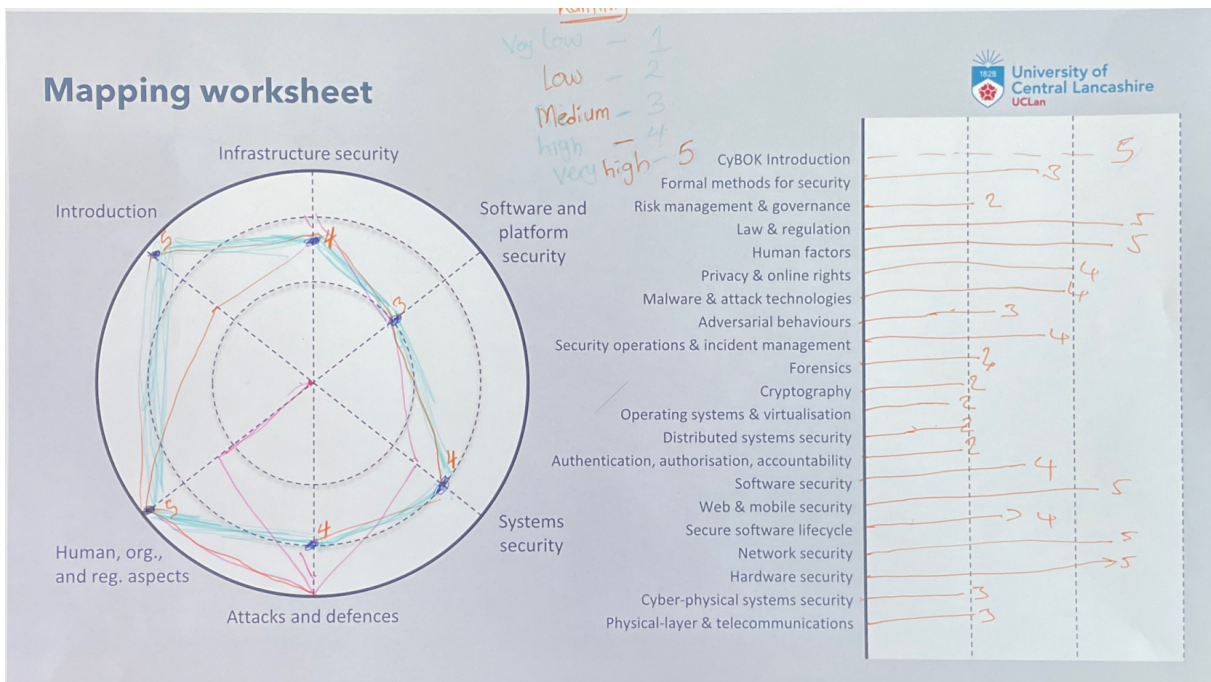 Very low - 1
Low - 2
Medium - 3
high - 4
very high - 5
Mapping worksheet
1828
University of
Central Lancashire
UCLan
Infrastructure security
Introduction
Software and
platform
security
Systems
security
Attacks and defences
Human, org.,
and reg. aspects
5
4
3
4
4
5
CyBOK Introduction 5
Formal methods for security 3
Risk management & governance 2
Law & regulation 5
Human factors 5
Privacy & online rights 4
Malware & attack technologies 4
Adversarial behaviours 3
Security operations & incident management 4
Forensics
Cryptography 2
Operating systems & virtualisation 2
Distributed systems security 2
Authentication, authorisation, accountability 2
Software security 4
Web & mobile security 5
Secure software lifecycle 4
Network security 5
Hardware security 5
Cyber-physical systems security 3
Physical-layer & telecommunications 3